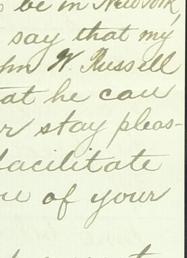 be in New York,
say that my
John W. Russell
that he can
r stay pleas-
facilitate
of your